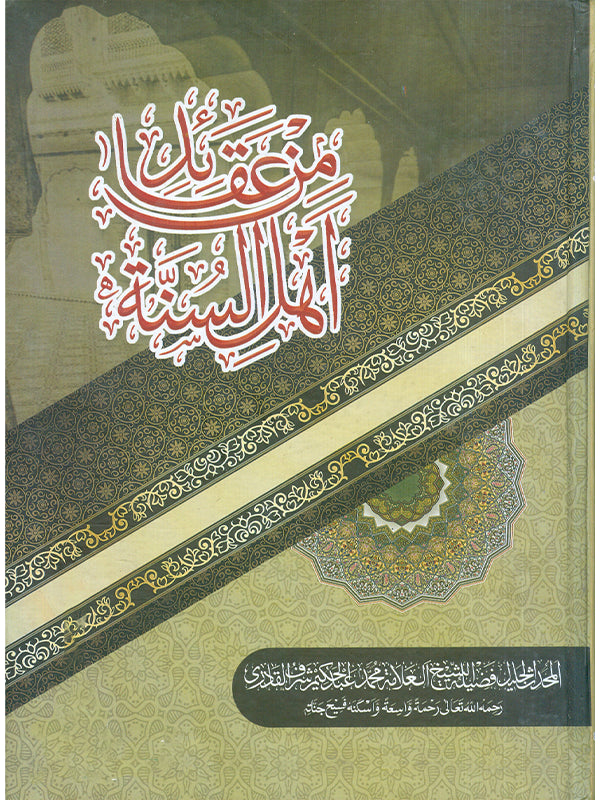 مِنْ عَقَائِدِ
أَهْلِ السُّنَّة
المحدث الجليل فضيلة الشيخ العلامة محمد عبد الحكيم شرف القادري
رحمه الله تعالى رحمة واسعة وأسكنه فسيح جنانه